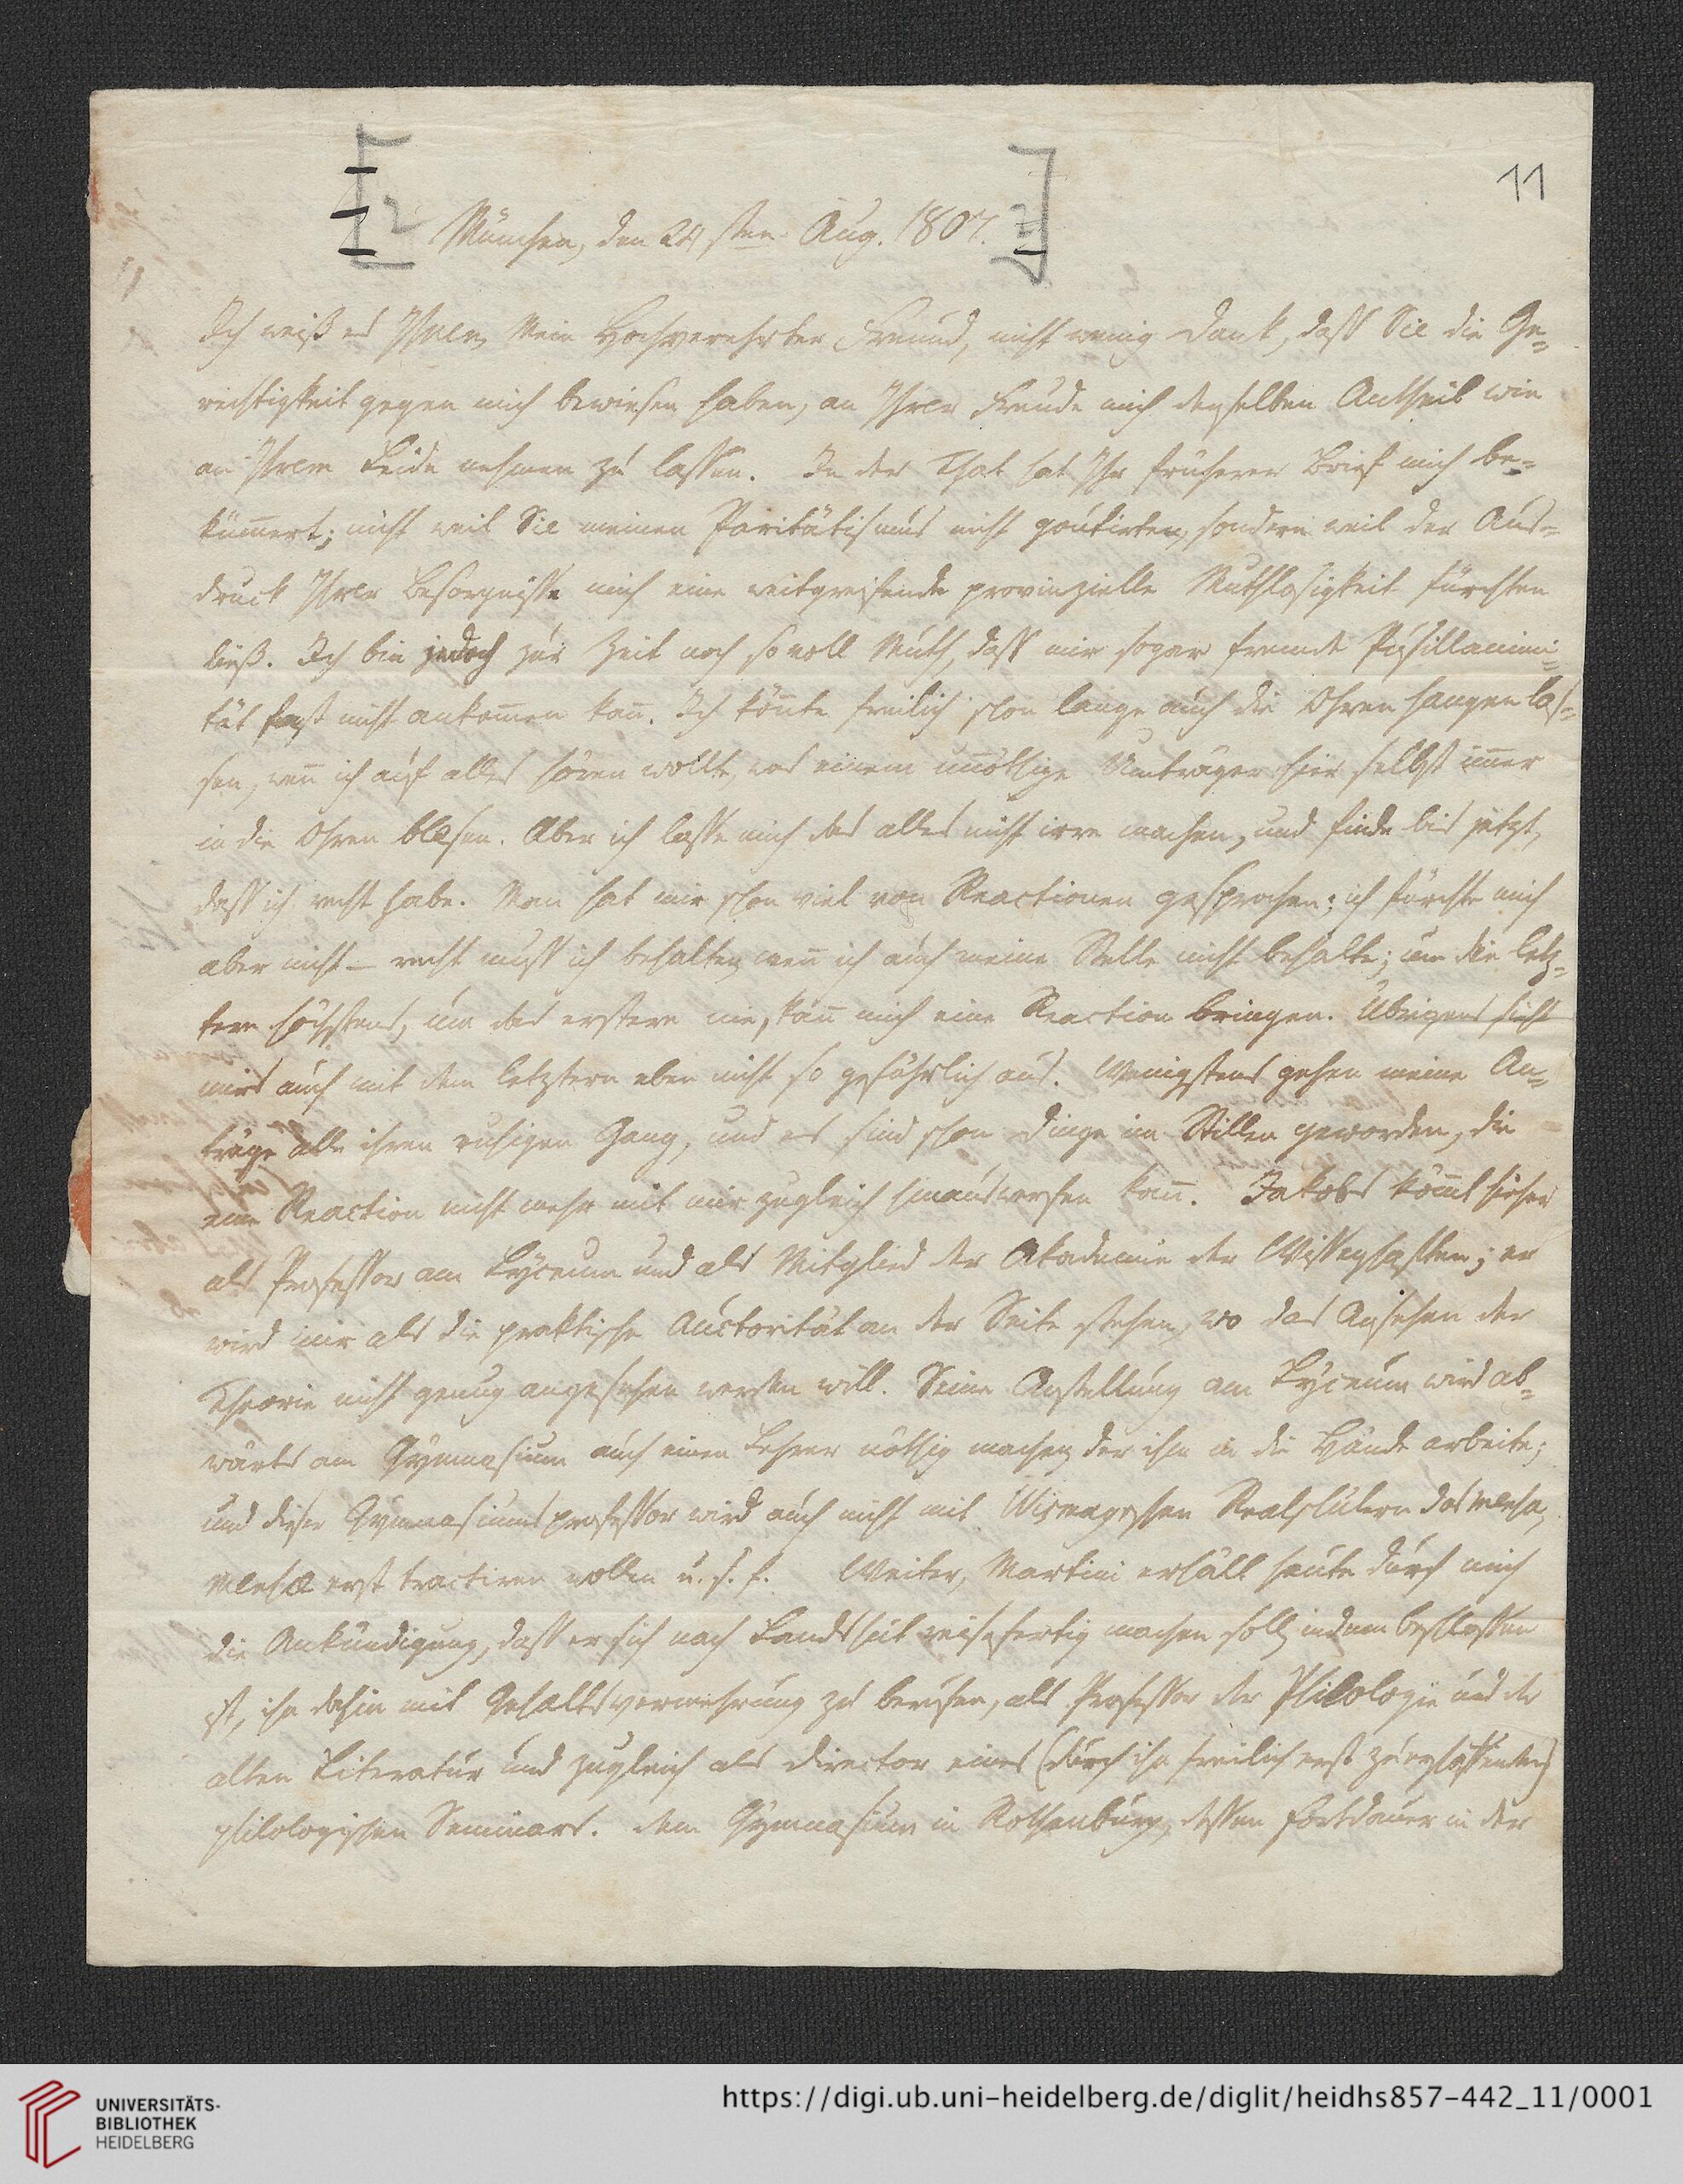 11
München, den 24sten Aug. 1807.
Ich weiß es Ihnen, Mein Hochverehrter Freund, nicht wenig Dank, daß Sie die Ge-
rechtigkeit gegen mich bewiesen haben, an Ihrer Freude mich denselben Antheil wie
an Ihrem Leide nehmen zu lassen. In der That hat Ihr früherer Brief mich be-
kum̅ert; nicht weil Sie meinen Paritätismus nicht goutirten, sondern weil der Aus-
druck Ihrer Besorgnisse mich eine weitgreifende provinzielle Muthlosigkeit fürchten
ließ. Ich bin jedoch zur Zeit noch so voll Muth, daß mir sogar fremde Pusillanimi-
tät fast nicht ankom̅en kan̅. Ich kön̅te freilich schon lange auch die Ohren hangen las-
sen, wen̅ ich auf alles hören wollte, was einem un̅öthige Umträger hier selbst im̅er
in die Ohren blasen. Aber ich lasse mich das alles nicht irre machen, und finde bis jetzt,
daß ich recht habe. Man hat mir schon viel von Reactionen gesprochen; ich fürchte mich
aber nicht – recht muß ich behalten, wen̅ ich auch meine Stelle nicht behalte; um die letz-
tere höchstens, um das erstere nie, kan̅ mich eine Reaction bringen. Übrigens sieht
mirs auch mit dem letztern eben nicht so gefährlich aus. Wenigstens gehen meine An-
träge alle ihren ruhigen Gang, und es sind schon Dinge im Stillen geworden, die
eine Reaction nicht mehr mit mir zugleich hinauswerfen kan̅. Jakobs köm̅t hieher
als Professor am Lyceum und als Mitglied der Akademie der Wissenschaften; er
wird mir als die praktische Auctorität an der Seite stehen, wo das Ansehen der
Theorie nicht genug angesehen werden will. Seine Anstellung am Lyceum wird ab-
wärts am Gymnasium auch einen Lehrer nöthig machen, der ihm in die Hände arbeite;
und dieser Gymnasiumsprofessor wird auch nicht mit Wismayrschen Realschülern das mensa,
mensæ erst tractiren wollen u. s. f. Weiter, Martini erhält heute durch mich
die Ankündigung, daß er sich nach Landshut reisefertig machen soll, indem beschlossen
ist, ihn dahin mit Gehaltsvermehrung zu berufen, als Professor der Philologie und der
alten Literatur und zugleich als Director eines (durch ihn freilich erst zu erschaffenden)
philologischen Seminars. Dem Gymnasium in Rothenburg, dessen Fortdauer in der
UNIVERSITÄTS-
BIBLIOTHEK
HEIDELBERG
https://digi.ub.uni-heidelberg.de/diglit/heidhs857-442_11/0001